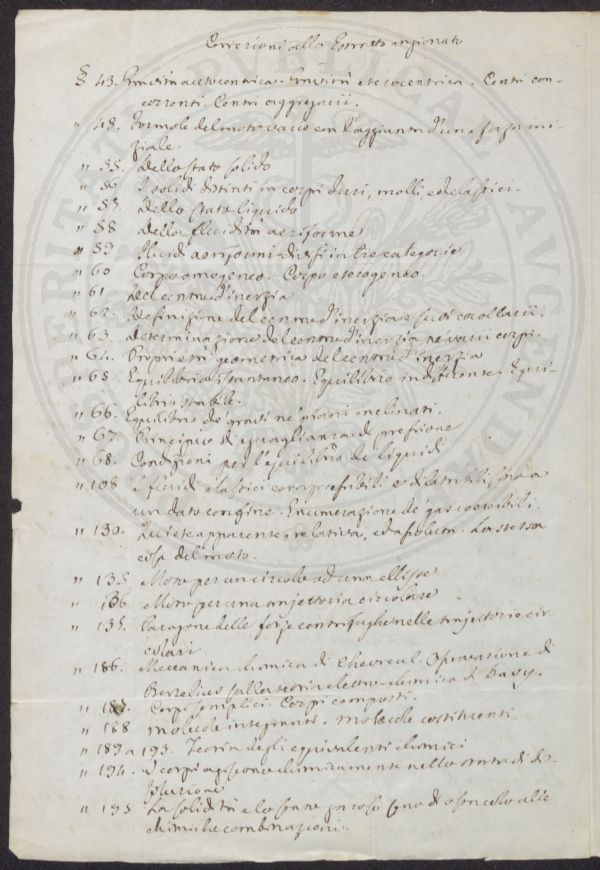 Correzioni allo Estratto ragionato
§ 43. Gravità acetocentrica. Gravità eterocentrica. Centri con-
correnti. Centri aggregati.
" 48. Formole del moto vario con l'aggiunta d'una forza ini-
ziale.
" 55. Dello stato solido
" 56 I solidi distinti in corpi duri, molli, ed elastici.
" 57. Dello stato liquido
" 58 Della fluidità aeriforme
" 59 Fluidi aeriformi divisi in tre categorie
" 60 Corpo omogeneo. Corpo eterogeneo.
" 61 Del centro d'inerzia
" 62. Definizione del centro d'inerzia e suoi corollarii.
" 63. Determinazione del centro d'inerzia ne' varii corpi.
" 64. Proprietà geometrica del centro d'inerzia
" 65. Equilibrio istantaneo. Equilibrio indifferente. Equi-
librio stabile.
" 66. Equilibrio de' gravi ne' piani inclinati.
" 67. Principio di eguaglianza di pressione
" 68. Condizioni per l'equilibrio de' liquidi
" 108 I fluidi elastici compressibili e dilatabili sino a
un dato confine. Enumerazione de' gas coercibili.
" 130. Quiete apparente, relativa, ed assoluta. La stessa
cosa del moto.
" 135 Moto per un circolo ad una ellisse
" 136 Moto per una trajettoria circolare
" 137. Paragone delle forze centrifughe nelle trajettorie cir-
colari
" 186. Meccanica chimica di Chevreul. Opinione di
Berzelius sulla teoria elettro-chimica di Davy.
" 187. Corpi semplici. Corpi composti.
" 188 Molecole integranti. Molecole costituenti.
" 189 a 193. Teoria degli equivalenti chimici
" 194. I corpi agiscono chimicamente nello stato di dis-
soluzione
" 195 La solidità e lo stato gazoso sono di ostacolo alle
chimiche combinazioni.
PROSPERITATI PVBLICAE AVGENDAE